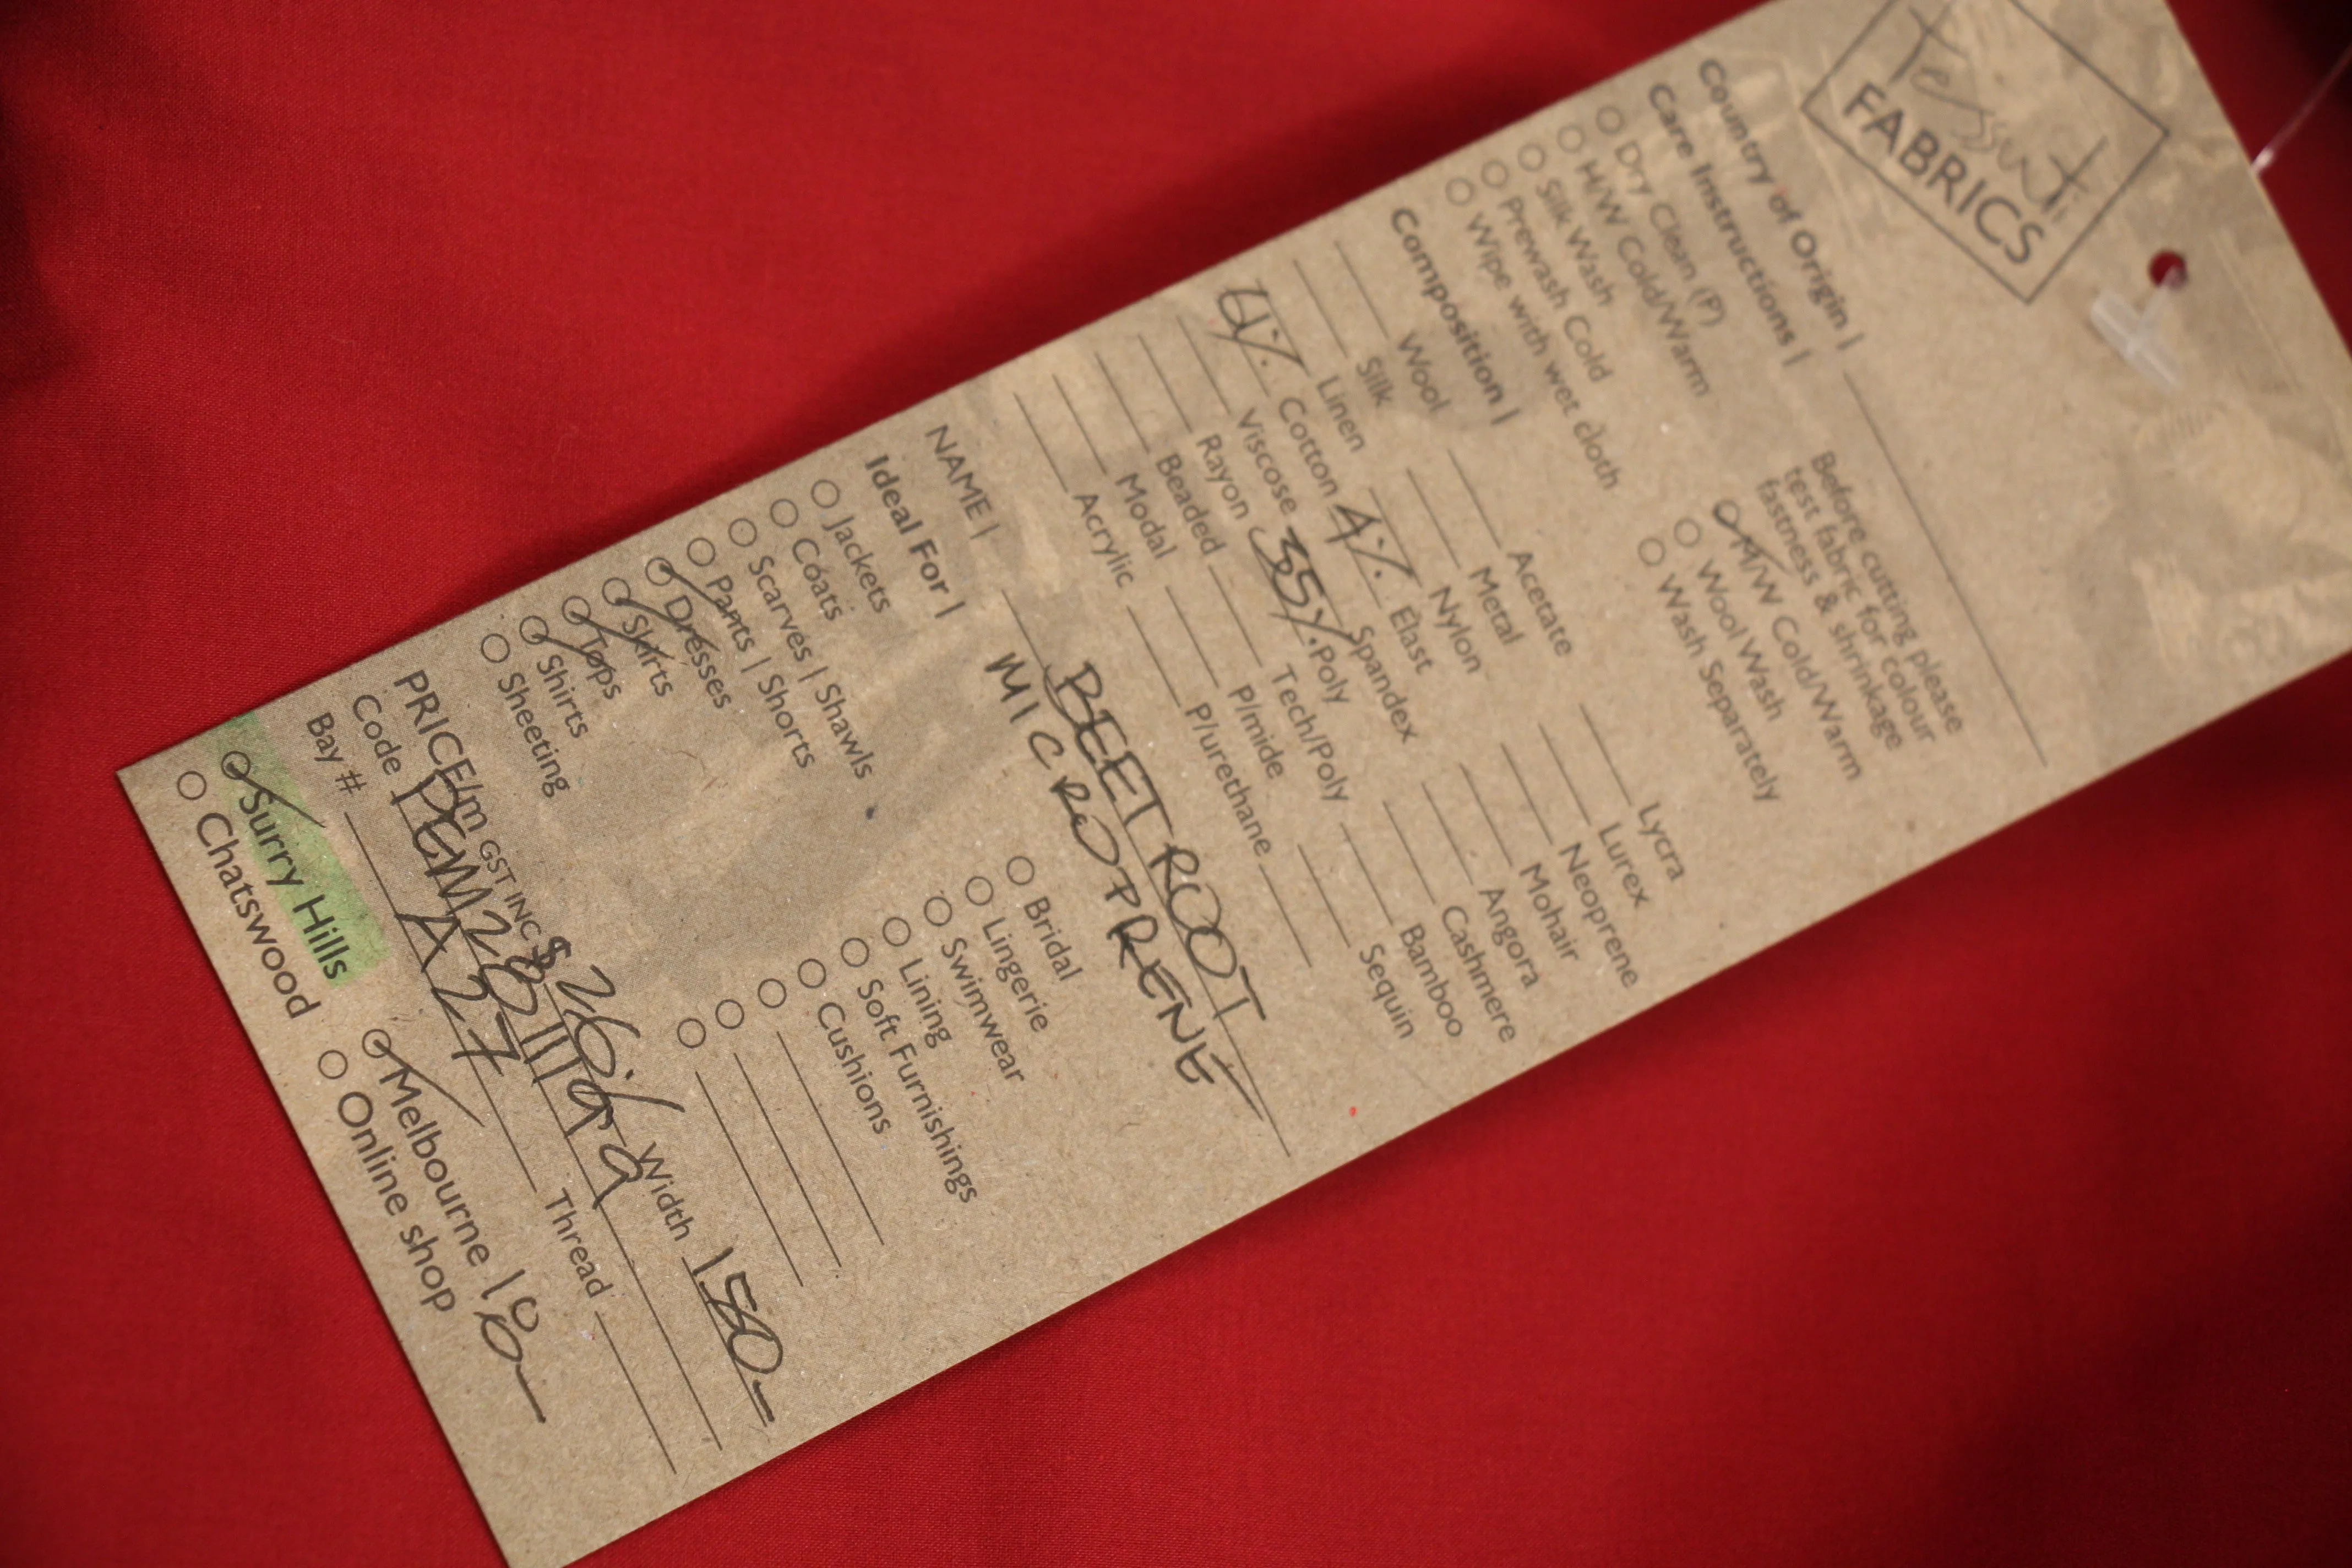 Tessuti
FABRICS
Country of Origin |
Care Instructions |
Before cutting please
test fabric for colour
fastness & shrinkage
Dry Clean (P)
H/W Cold/Warm
Silk Wash
Prewash Cold
Wipe with wet cloth
M/W Cold/Warm
Wool Wash
Wash Separately
Composition |
Wool Acetate Lycra
Silk Metal Lurex
Linen Nylon Neoprene
Cotton 4% Elast Mohair
Viscose Spandex Angora
Rayon 35% Poly Cashmere
Beaded Tech/Poly Bamboo
Modal P/mide Sequin
Acrylic P/urethane
NAME | BEETROOT
MICROPRENE
Ideal For |
Jackets
Coats
Scarves | Shawls
Pants | Shorts
Dresses
Skirts
Tops
Shirts
Sheeting
Bridal
Lingerie
Swimwear
Lining
Soft Furnishings
Cushions
PRICE/m GST INC $ Width 150
Code
Bay # A27 Thread
Surry Hills Melbourne
Chatswood Online shop